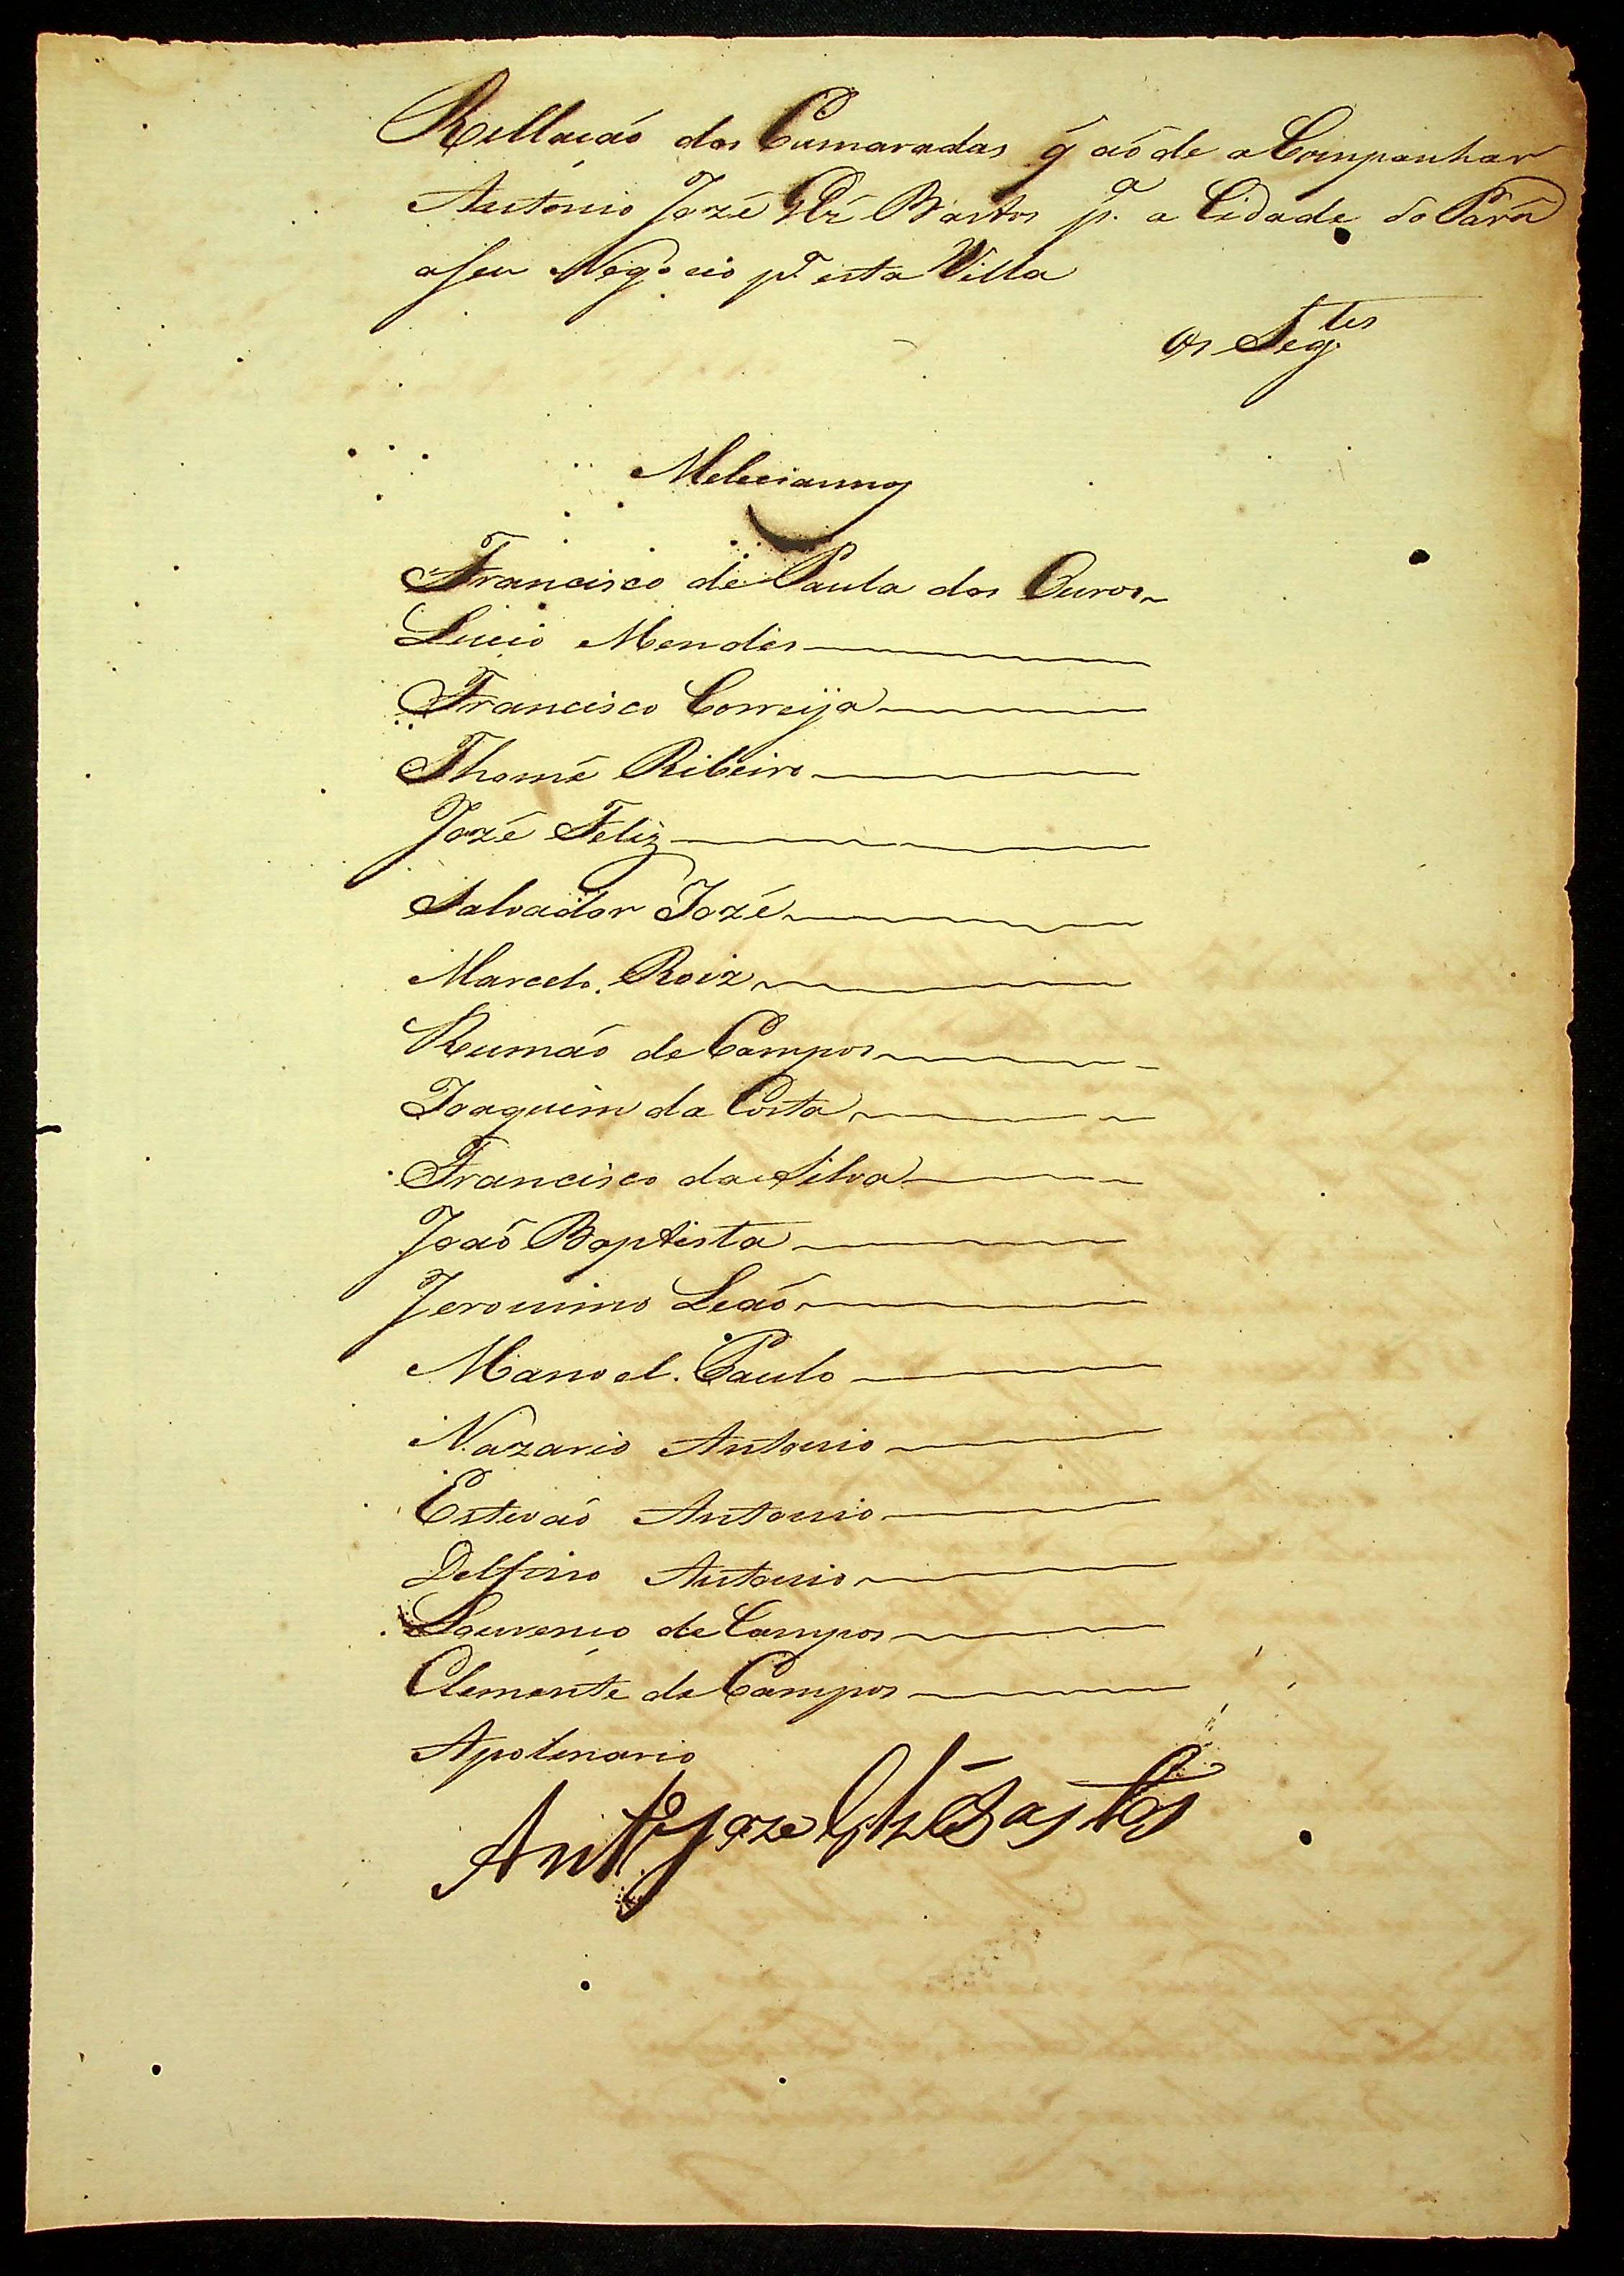 Rellação dos Cumaradas q̃ aõ de a Companhar
Antonio Jozé Bastos p.ª a Cidade do Pará
a seu Negocio pª esta Villa
os Seg.tes
Melecianno
Francisco de Paula dos Ouros
Lucio Mendes
Francisco Correija
Thomé Ribeiro
Jozé Feliz
Salvador Jozé
Marcelo Roiz
Rumão de Campos
Joaquim da Costa
Francisco da Silva
João Baptista
Jeronimo Leaõ
Manoel Paulo
Nazario Antonio
Estevaõ Antonio
Delfino Antonio
Lourenço de Campos
Clemente de Campos
Apolinario
Antº Joze Bastos